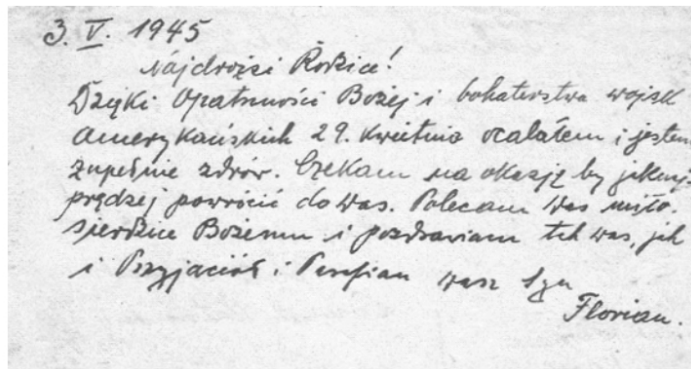 3. V. 1945
Najdrożsi Rodzice!
Dzięki Opatrzności Bożej i bohaterstwa wojsk
amerykańskich 29. kwietnia ocalałem i jestem
zupełnie zdrów. Czekam na okazję by jaknaj-
prędzej powrócić do was. Polecam was miło-
sierdziu Bożemu i pozdrawiam tak was, jak
i Przyjaciół i Parafian wasz Syn
Florian.